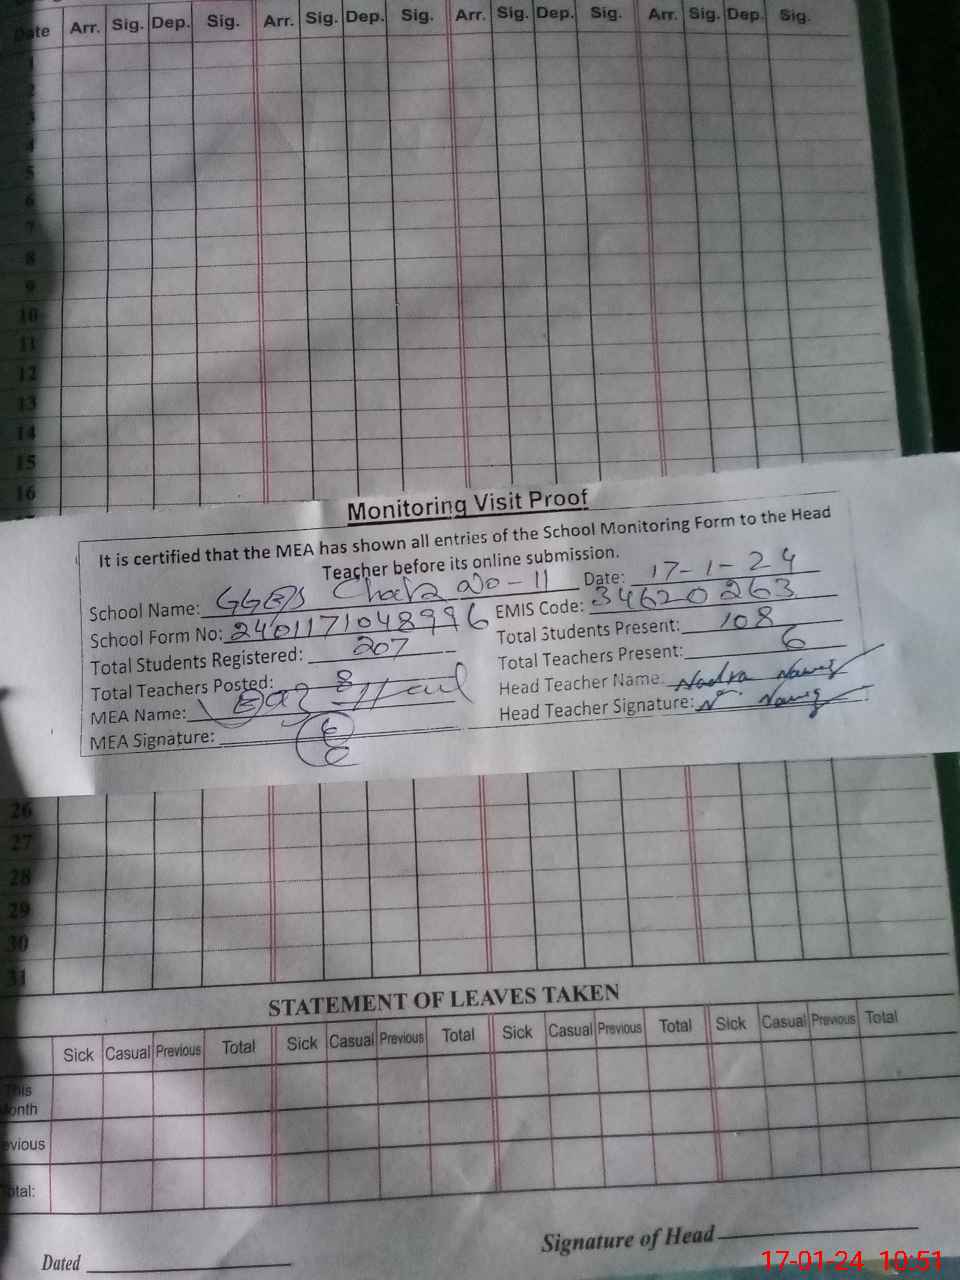 Date Arr. Sig. Dep. Sig. Arr. Sig. Dep. Sig. Arr. Sig. Dep. Sig. Arr. Sig. Dep. Sig.
1
2
3
4
5
6
7
8
9
10
11
12
13
14
15
16
Monitoring Visit Proof
It is certified that the MEA has shown all entries of the School Monitoring Form to the Head
Teacher before its online submission.
School Name: No-11 Date: 17-1-24
School Form No: EMIS Code: 34620263
Total Students Registered: 207 Total Students Present: 108
Total Teachers Posted: 8 Total Teachers Present: 6
MEA Name: Head Teacher Name: Nadra Nawaz
MEA Signature: Head Teacher Signature: N. Nawaz
26
27
28
29
30
31
STATEMENT OF LEAVES TAKEN
Sick Casual Previous Total Sick Casual Previous Total Sick Casual Previous Total Sick Casual Previous Total
This
Month
evious
otal:
Dated Signature of Head
17-01-24 10:51